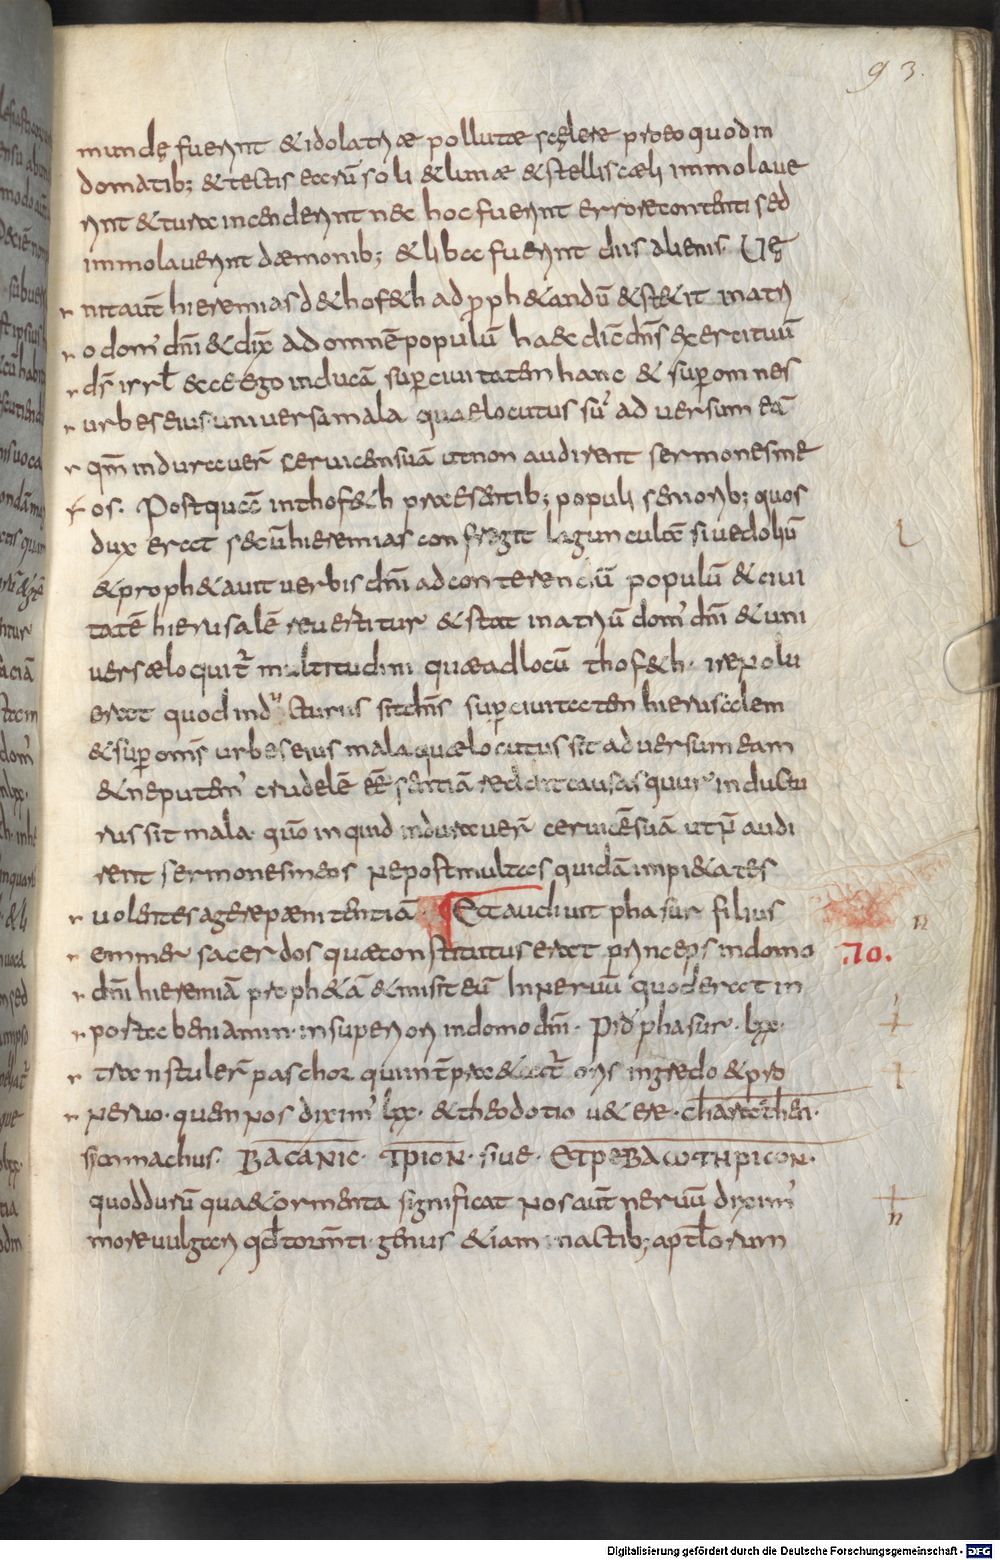 93.
mundę fuerint & idolatriæ pollutæ scęlere pro eo quod in
domatib; & tectis eorū soli & lunæ & stellis cæli immolaue
rint & tura incenderint nec hoc fuerint errore contenti sed
immolauerint dæmonib; & liba fuerint diis alienis. Ue
nit aut hieremias de thofeth ad prophetandū & stetit in atri
o dom' dn̄i & dix̄ ad omnē populū haec dic̄ dn̄s exercituū
ds̄ isrl̄ ecce ego inducā super ciuitatem hanc & super omnes
urbes eius uniuersa mala quae locutus sū aduersum eā
qm̄ indurauer̄ ceruicem suā ut non audirent sermones me
os. Postquā in thofeth præsentib; populi seniorib; quos
duxerat secū hieremias confregit lagunculā siue doliū
& prophetauit uerbis dn̄i ad conterendū populū & ciui
tatē hierusalē reuertitur & stat in atriū dom' dn̄i & uni
uersæ loquitr̄ multitudini quæ ad locū thofeth ire nolu
erat quod inducturus sit dn̄s super ciuitatem hierusalem
& super om̄s urbes eius mala quæ locutus sit aduersum eam
& ne putem' crudelē eē sententiā reddit causas quur inductu
rus sit mala. quō inquid indurauer̄ ceruicē suā ut n̄ audi
rent sermones meos ne post multas quidā impietates
uolentes agere pænitentiā. Et audiuit phasur filius
emmer sacerdos qui constitutus erat princeps in domo
dn̄i hieremiā prophetā & misit eū in neruū quod erat in
porta beniamin. in superiori in domo dn̄i. Pro phasur. lxx.
transtuler̄ paschor quint̄ præ oris nigredo & pro
neruo. quem nos dixim' lxx. & theodotio uertere. characthen.
simmachus. BACANIC. TPION. siue. ETPEBΛωTHPICON.
quod durū qua & tormenta significat nos aut neruū dixim'
more uulgari qd torm̄ti genus etiam in actib; aptlorum
70.